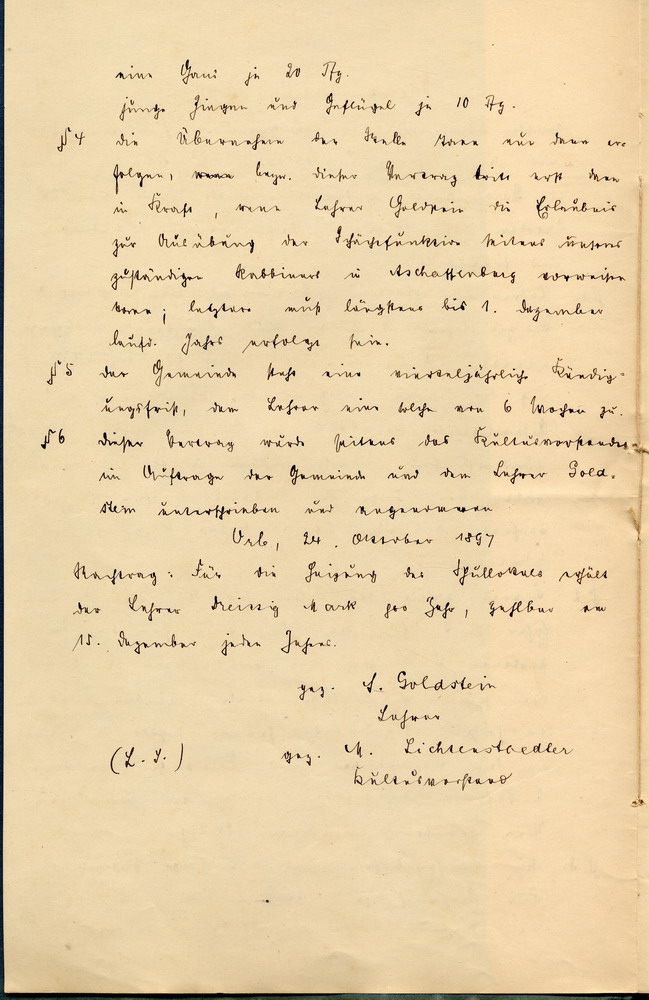 eine Gans je 20 Pfg.
junge Ziegen und Geflügel je 10 Pfg.
§ 4 die Übernahme der Stelle kann nur dann er-
folgen, wenn bezw. dieser Vertrag tritt erst dann
in Kraft, wenn Lehrer Goldstein die Erlaubnis
zur Ausübung der Schächtfunktion seitens unseres
zuständigen Rabbiners in Aschaffenburg vorweisen
kann; letzteres muß längstens bis 1. Dezember
laufd. Jahrs erfolgt sein.
§ 5 der Gemeinde steht eine vierteljährliche Kündig-
ungsfrist, dem Lehrer eine solche von 6 Wochen zu.
§ 6 dieser Vertrag wurde seitens des Kultusvorstandes
im Auftrage der Gemeinde und dem Lehrer Gold-
stein unterschrieben und angenommen
Orb, 24. Oktober 1897
Nachtrag: Für die Heizung des Schullokals erhält
der Lehrer dreissig Mark pro Jahr, zahlbar am
15. Dezember jeden Jahres.
gez. S. Goldstein
Lehrer
(L. S.) gez. M. Lichtenstaedter
Kultusvorstand